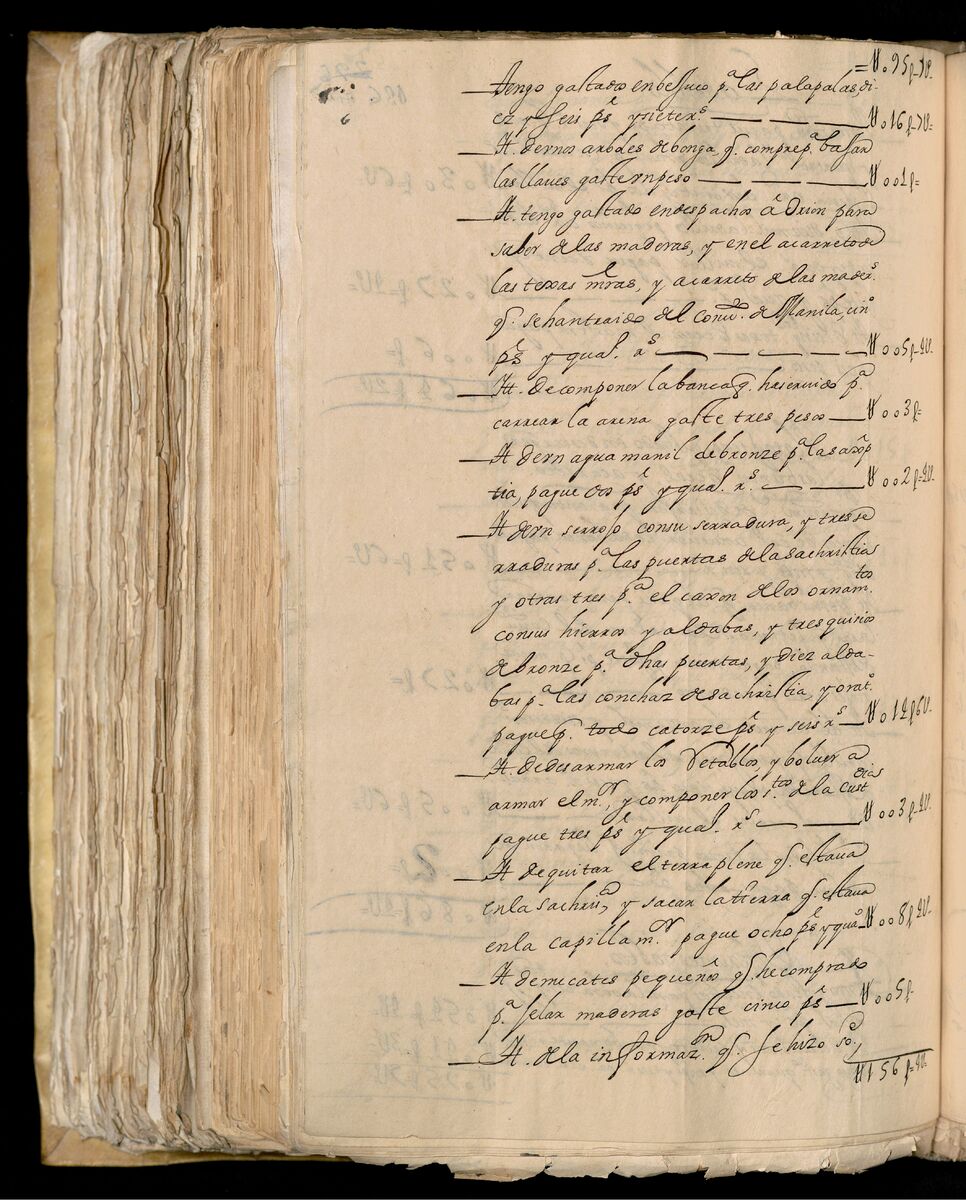 =U o 95p-7U.
tengo gastados en besuco p.ª las palapalas, di-
ez y seis p.s y siete r.s — — — U o 16p-7U=
It. de rnos arboles de bonga q. compre p.ª basar
las llaues gaste rn peso — — — — U o o 1p=
It. tengo gastado en despachos â Orion para
saber de las maderas, y en el acarreto de
las texas mras, y acarreto de las mader.s
q. se han traido del Conu.to de Manila, cin.o
p.s y qual. r.s — — — — — U o o 5p-4U.
It. de componer la banca q. ha seruido p.ª
carrear la arena gaste tres pesos — U o o 3p=
It de rn aguamanil de bronze p.ª la sacrip
tia, pague dos p.s y qual. r.s — — U o o 2p-4U.
It de rn serrojo con su serradura, y tres se
rraduras p.ª las puertas de la sachristia
y otras tres p.ª el caxon de los ornam.tos
con sus hierros y aldabas, y tres quirios
de bronze p.ª dhas puertas, y diez alda-
bas p.ª las conchaz de sachristia, y orat.
pague p. todo catorze p.s y seis r.s — U o 14p6U.
It. de desarmar los retablos, y boluer a
armar el m.or, y componer los s.tos de la Custodias
pague tres p.s y qual. r.s — — U o o 3p-4U.
It de quitar el terraplene q. estaua
en la sachris.ª, y sacar la tierra q. estaua
en la capilla m.or pague ocho p.s y qua.o U o o 8p-4U.
It de mecates pequeños q. he comprado
p.ª jelar maderas gaste cinco p.s — U o o 5p-
It. de la informaz.on q. se hizo so.e,
U 1 5 6 p=4U.